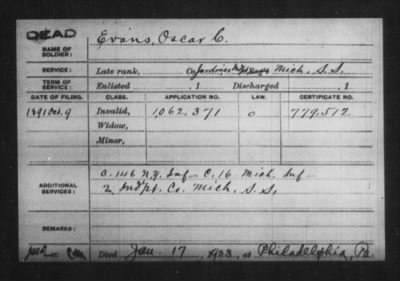 DEAD
NAME OF SOLDIER: Evans, Oscar C.
SERVICE: Late rank, Co Mich. S.S.
TERM OF SERVICE: Enlisted , 1 Discharged , 1
DATE OF FILING. CLASS. APPLICATION NO. LAW. CERTIFICATE NO.
1891 Oct. 9 Invalid, 1,062,371 o 779,512
Widow,
Minor,
ADDITIONAL SERVICES: C. 146 N.Y. Inf - C. 16 Mich. Inf
2 Ind'pt. Co. Mich. S.S.
REMARKS:
Died Jan. 17, 1923, at Philadelphia, Pa